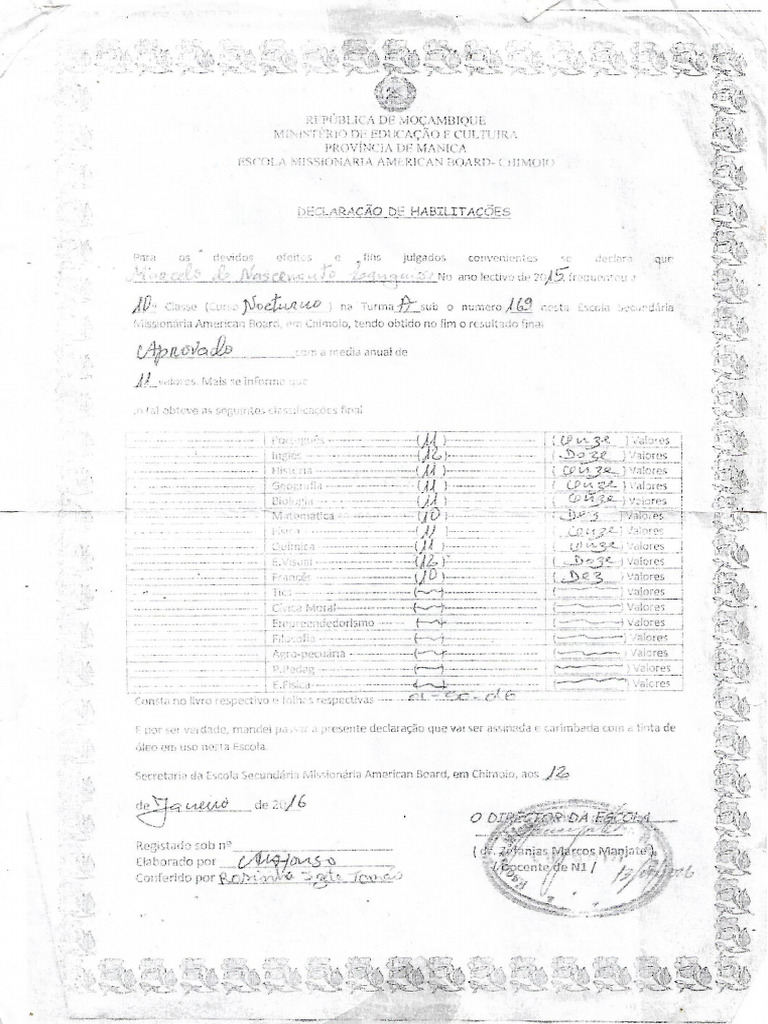 REPÚBLICA DE MOÇAMBIQUE
MINISTÉRIO DE EDUCAÇÃO E CULTURA
PROVÍNCIA DE MANICA
ESCOLA MISSIONÁRIA AMERICAN BOARD- CHIMOIO
DECLARAÇÃO DE HABILITAÇÕES
Para os devidos efeitos e fins julgados convenientes se declara que
Marcelo do Nascimento No ano lectivo de 2015 frequentou a
10ª Classe (Curso Nocturno) na Turma A sub o numero 169 nesta Escola Secundária
Missionária American Board, em Chimoio, tendo obtido no fim o resultado final
Aprovado com a media anual de
11 valores. Mais se informo que
o tal obteve as seguintes classificações final
Português (11) (Onze) Valores
Inglês (12) (Doze) Valores
História (11) (Onze) Valores
Geografia (11) (Onze) Valores
Biologia (11) (Onze) Valores
Matemática (10) (Dez) Valores
Física (11) (Onze) Valores
Química (11) (Onze) Valores
E.Visual (12) (Doze) Valores
Francês (10) (Dez) Valores
Tics Valores
Cívica Moral Valores
Empreendedorismo Valores
Filosofia Valores
Agro-pecuária Valores
P.Pedag Valores
E.Física Valores
Consta no livro respectivo e folhas respectivas
E por ser verdade, mandei passar a presente declaração que vai ser assinada e carimbada com a tinta de
óleo em uso nesta Escola.
Secretaria da Escola Secundária Missionária American Board, em Chimoio, aos 12
de Janeiro de 2016
O DIRECTOR DA ESCOLA
(dr. Zefanias Marcos Manjate)
/ Docente de N1 /
Registado sob nº
Elaborado por
Conferido por Rosinha Tomás